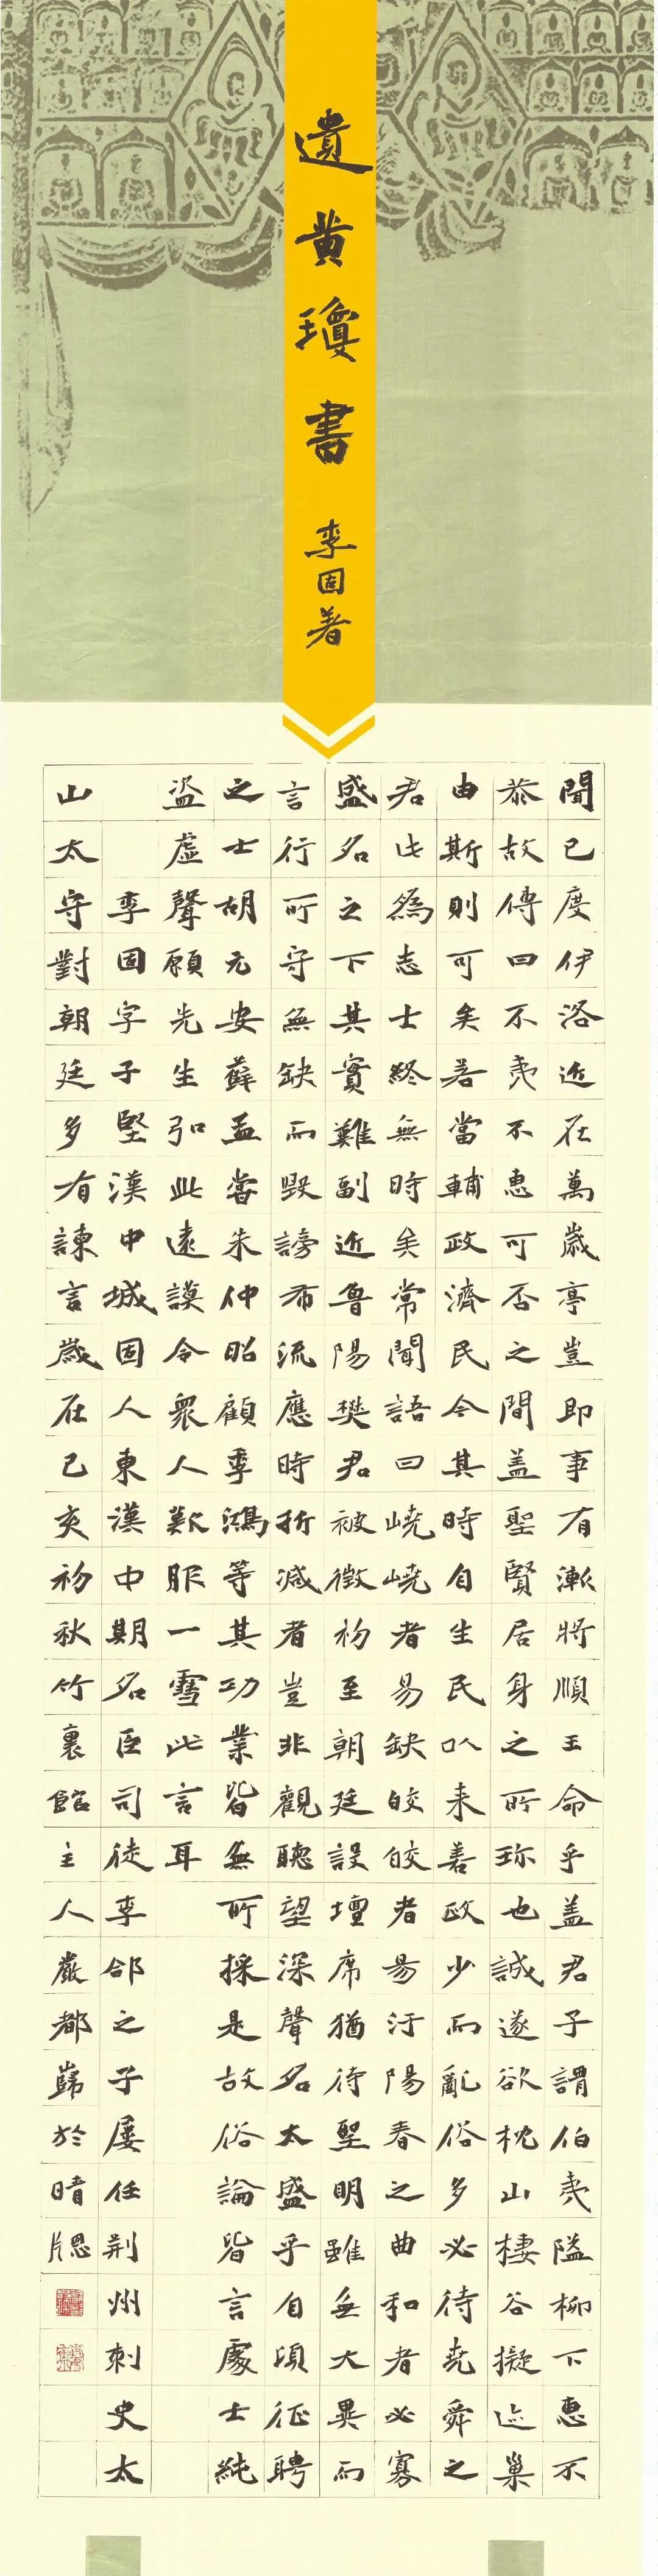 遺黄瓊書
李固著
聞已度伊洛近在萬歲亭豈即事有漸將順王命乎盖君子謂伯夷隘柳下惠不
恭故傳曰不夷不惠可否之間盖聖賢居身之所珎也誠遂欲枕山棲谷擬迹巢
由斯則可矣若當輔政濟民今其時自生民以来善政少而亂俗多必待尭舜之
君此爲志士終無時矣常聞語曰嶢嶢者易缺皎皎者易汙陽春之曲和者必寡
盛名之下其實難副近魯陽樊君被徵初至朝廷設壇席猶待聖明雖無大異而
言行所守無缺而毀謗布流應時折减者豈非觀聽望深聲名太盛乎自頃征聘
之士胡元安薛孟嘗朱仲昭顧季鴻等其功業皆無所採是故俗論皆言處士純
盗虛聲願先生弘此遠謨令衆人歎服一雪此言耳
李固字子堅漢中城固人東漢中期名臣司徒李郃之子屢任荆州刺史太
山太守對朝廷多有諫言歲在己亥初秋竹裏館主人嚴都歸於晴牕